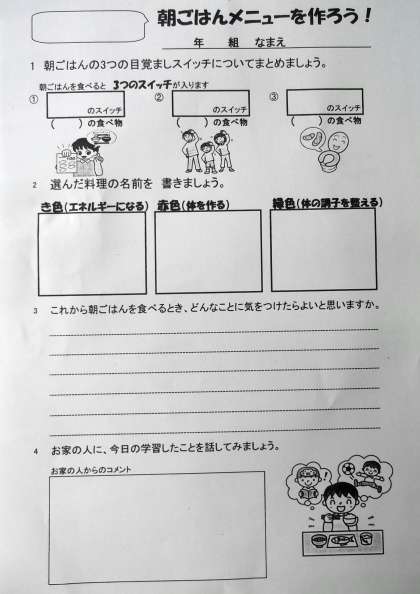 朝ごはんメニューを作ろう!
年 組 なまえ
1 朝ごはんの3つの目覚ましスイッチについてまとめましょう。
朝ごはんを食べると 3つのスイッチが入ります
① のスイッチ
( )の食べ物
② のスイッチ
( )の食べ物
③ のスイッチ
( )の食べ物
2 選んだ料理の名前を 書きましょう。
き色(エネルギーになる)
赤色(体を作る)
緑色(体の調子を整える)
3 これから朝ごはんを食べるとき、どんなことに気をつけたらよいと思いますか。
4 お家の人に、今日の学習したことを話してみましょう。
お家の人からのコメント